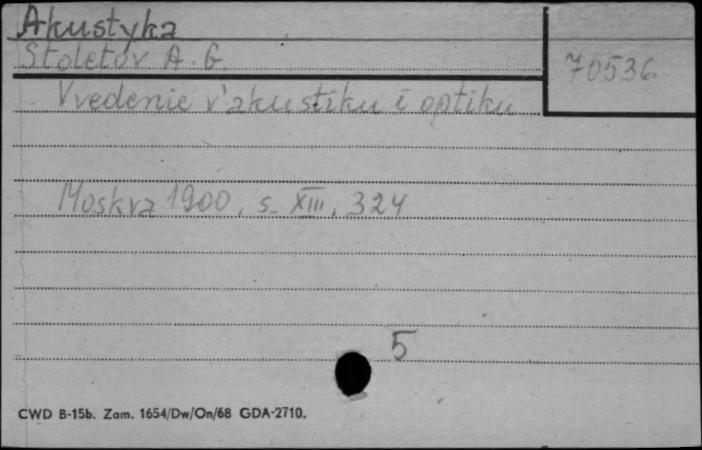 Akustyka
Stoletov A. G.
70536
Vvedenie v' akustiku i optiku
Moskva 1900, s. XIII, 324
5
CWD B-15b. Zam. 1654/Dw/On/68 GDA-2710.